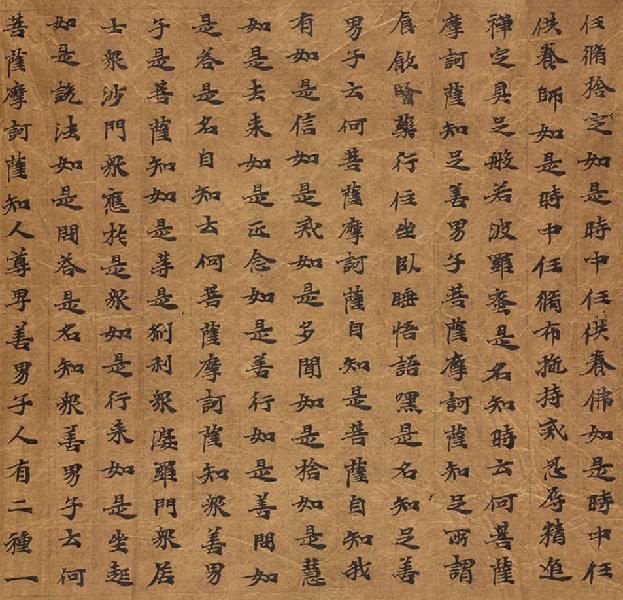 任脩捨定如是時中任供養佛如是時中任
供養師如是時中任脩布施持戒忍辱精進
禪定具足般若波羅蜜是名知時云何菩薩
摩訶薩知足善男子菩薩摩訶薩知足所謂
食飲醫藥行住坐卧睡悟語嘿是名知足善
男子云何菩薩摩訶薩自知是菩薩自知我
有如是信如是戒如是多聞如是捨如是慧
如是去來如是正念如是善行如是善問如
是答是名自知云何菩薩摩訶薩知衆善男
子是菩薩知如是等是刹利衆婆羅門衆居
士衆沙門衆應於是衆如是行来如是坐起
如是說法如是問答是名知衆善男子云何
菩薩摩訶薩知人尊卑善男子人有二種一